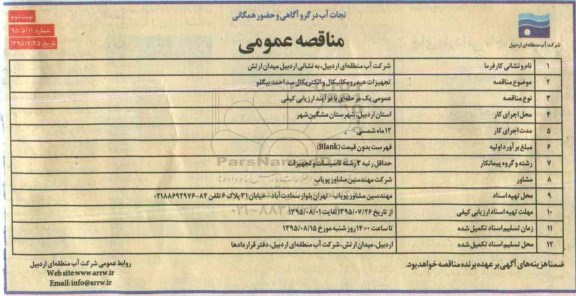 نجات آب در گرو آگاهی و حضور همگانی
نوبت دوم
شماره ۹۵/۵/۱۱
تاریخ ۱۳۹۵/۷/۲۵
شرکت آب منطقه‌ای اردبیل
مناقصه عمومی
۱ نام و نشانی کارفرما شرکت آب منطقه‌ای اردبیل، به نشانی اردبیل میدان ارتش
۲ موضوع مناقصه تجهیزات هیدرومکانیکال و الکتریکال سد احمد بیگلو
۳ نوع مناقصه عمومی یک مرحله‌ای با فرآیند ارزیابی کیفی
۴ محل اجرای کار استان اردبیل، شهرستان مشگین شهر
۵ مدت اجرای کار ۱۲ ماه شمسی
۶ مبلغ برآورد اولیه فهرست بدون قیمت (Blank)
۷ رشته و گروه پیمانکار حداقل رتبه ۴ رشته تاسیسات و تجهیزات
۸ مشاور شرکت مهندسین مشاور پویاب
۹ محل تهیه اسناد مهندسین مشاور پویاب - تهران بلوار سعادت آباد - خیابان ۳۱ پلاک ۶ تلفن ۸۴-۰۲۱۸۸۶۹۲۹۷۶
۱۰ مهلت تهیه اسناد ارزیابی کیفی از تاریخ ۱۳۹۵/۰۷/۲۶ لغایت ۱۳۹۵/۰۸/۰۱
۱۱ زمان تسلیم اسناد تکمیل شده تا ساعت ۱۴:۰۰ روز شنبه مورخ ۱۳۹۵/۰۸/۱۵
۱۲ محل تسلیم اسناد تکمیل شده اردبیل، میدان ارتش، شرکت آب منطقه‌ای اردبیل، دفتر قراردادها
ضمنا هزینه‌های آگهی بر عهده برنده مناقصه خواهد بود.
روابط عمومی شرکت آب منطقه‌ای اردبیل
Web site: www.arrw.ir
Email: info@arrw.ir